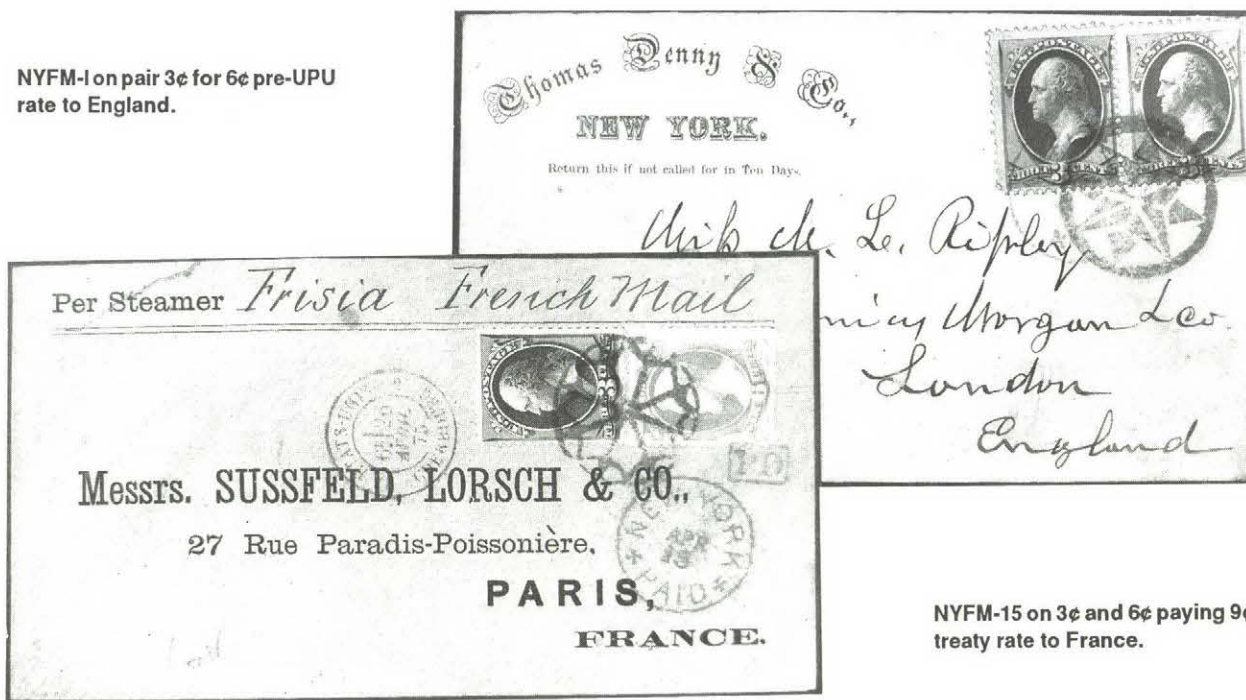 NYFM-I on pair 3¢ for 6¢ pre-UPU
rate to England.
Thomas Denny & Co.,
NEW YORK.
Return this if not called for in Ten Days.
Miss M. L. Ripley
Morgan & Co.
London
England
Per Steamer Frisia French Mail
Messrs. SUSSFELD, LORSCH & CO.,
27 Rue Paradis-Poissonière,
PARIS,
FRANCE.
PD
NEW YORK
APR
PAID
NYFM-15 on 3¢ and 6¢ paying 9¢
treaty rate to France.